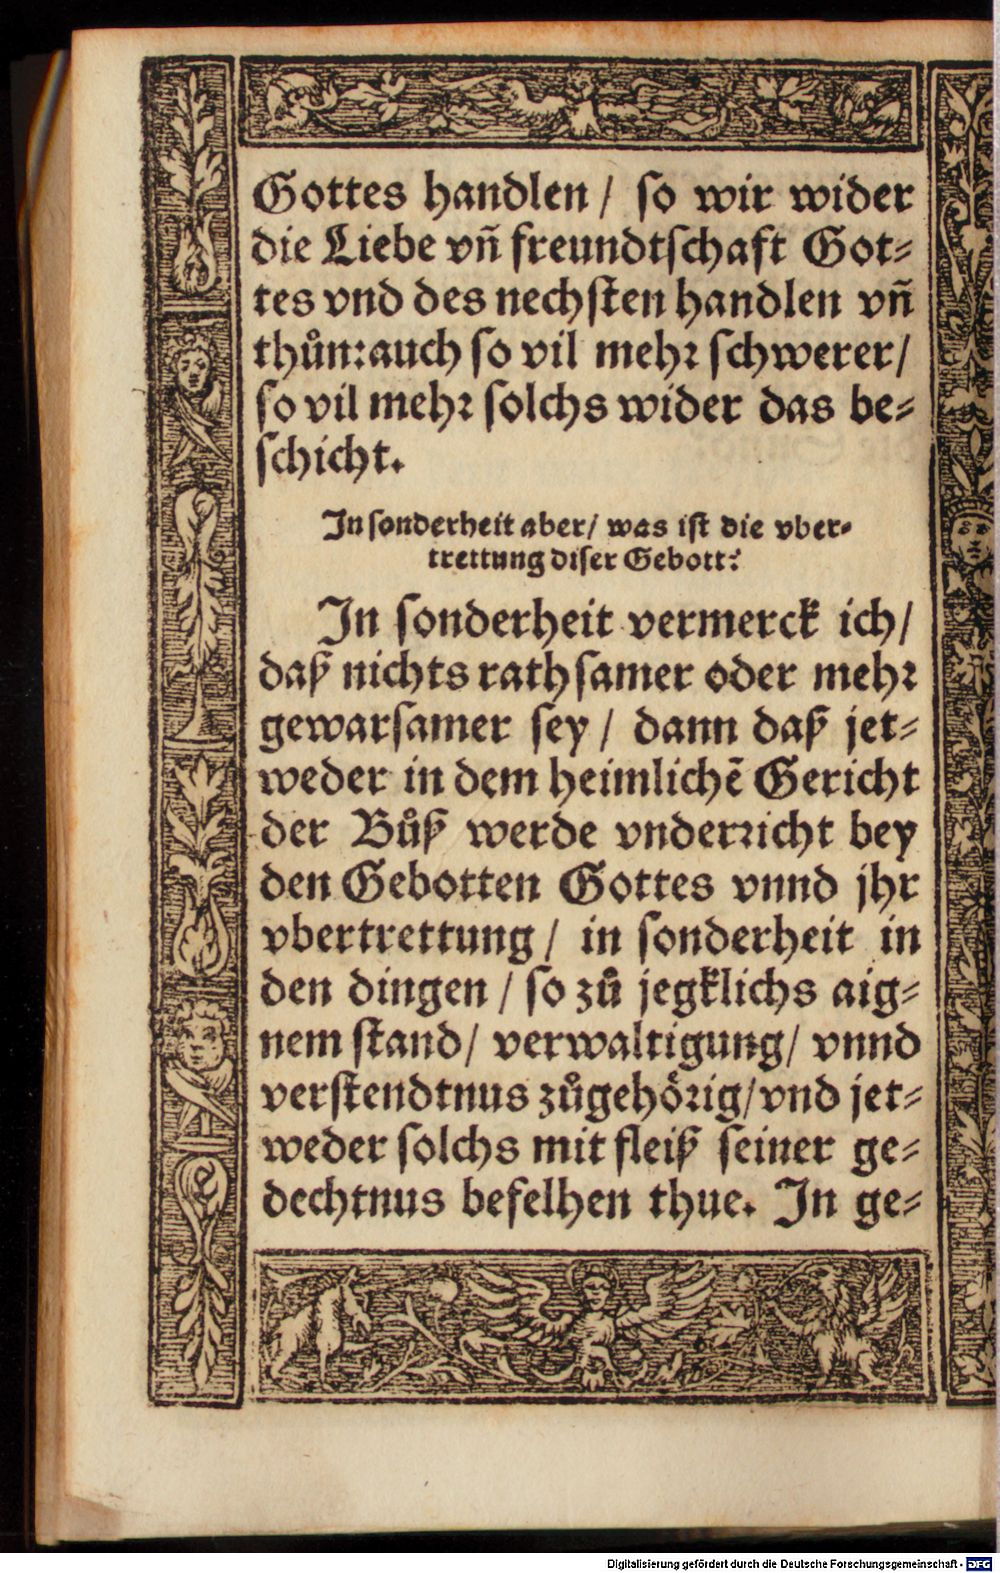 Gottes handlen / so wir wider
die Liebe vñ freundtschaft Got⸗
tes vnd des nechsten handlen vñ
thůn: auch so vil mehr schwerer/
so vil mehr solchs wider das be⸗
schicht.
In sonderheit aber/ was ist die vber⸗
trettung diser Gebott?
In sonderheit vermerck ich/
daß nichts rathsamer oder mehr
gewarsamer sey / dann daß jet⸗
weder in dem heimlichẽ Gericht
der Bůß werde vnderricht bey
den Gebotten Gottes vnnd jhr
vbertrettung / in sonderheit in
den dingen / so zů jegklichs aig⸗
nem stand/ verwaltigung/ vnnd
verstendtnus zůgehörig/ vnd jet⸗
weder solchs mit fleiß seiner ge⸗
dechtnus befelhen thue. In ge⸗
Digitalisierung gefördert durch die Deutsche Forschungsgemeinschaft - DFG